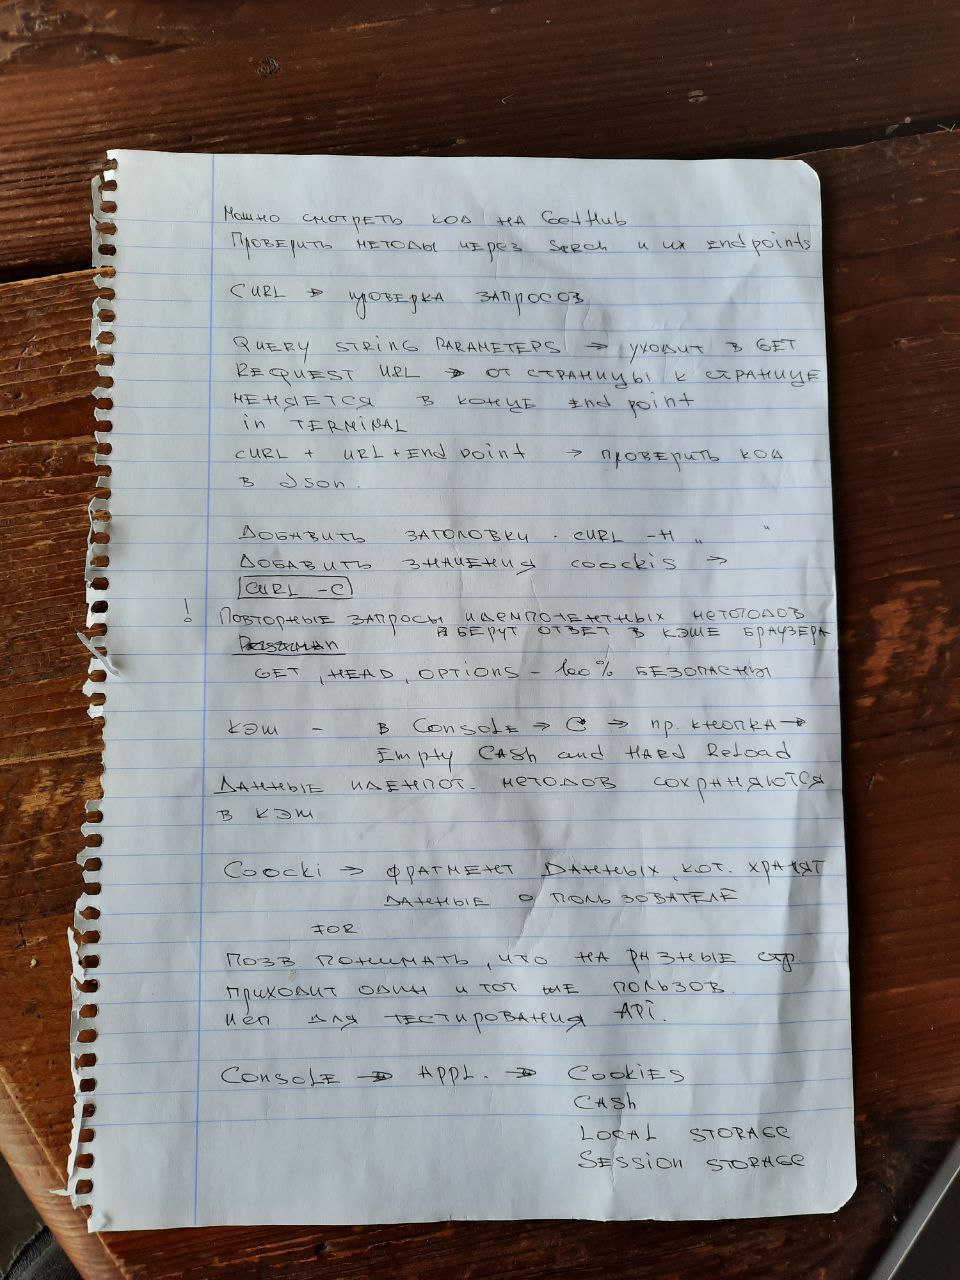 Можно смотреть код на GetHub
Проверить методы через Serch и их Endpoints
CURL → проверка запросов
QUERY STRING PARAMETERS → уходит в GET
REQUEST URL → от страницы к странице
меняется в конце End point
in TERMINAL
CURL + URL + End point → проверить код
в Json.
Добавить заголовки . CURL -H „ "
Добавить значения coockis →
CURL -C
! Повторные запросы идемпотентных метотодов
берут ответ в кэше браузера
GET, HEAD, OPTIONS - 100% безопасны
кэш - в Console → C → пр. кнопка →
Empty CASh and HARd Reload
Данные иденпот. методов сохраняются
в кэш
Coocki → фрагмент данных, кот. хранят
данные о пользователе
FOR
позв понимать, что на разные стр.
приходит один и тот же пользов.
исп. для тестирования API.
Console → APPL. → Cookies
CASh
LOCAL STORAGE
SESSION STORAGE